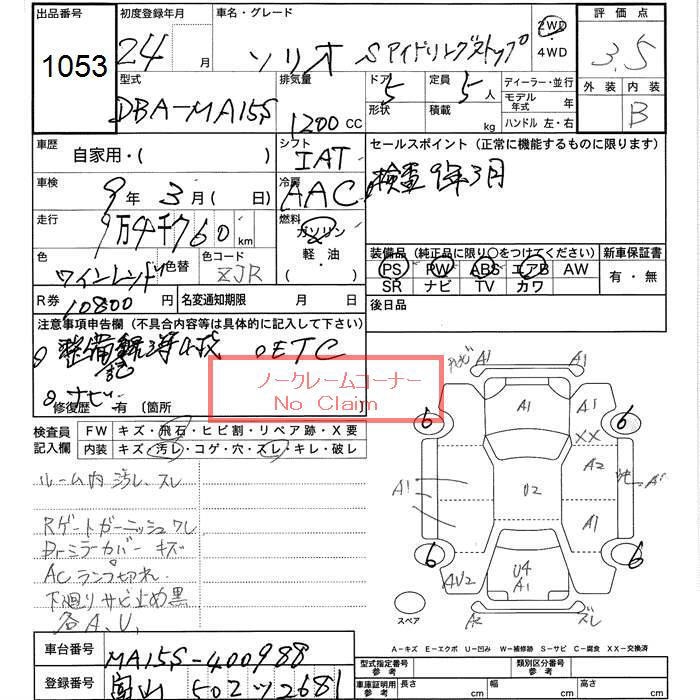 出品番号 初度登録年月 車名・グレード 2WD 評価点
1053 24 月 ソリオ Sアイドリングストップ ・4WD 3.5
型式 排気量 ドア 5 定員 5人 ディーラー・並行 外装 内装
DBA-MA15S 1200 CC 形状 積載 kg モデル年式 年 B
ハンドル 左・右
車歴 自家用・( ) シフト IAT セールスポイント(正常に機能するものに限ります)
車検 9年 3月 ( 日) 冷房 AAC 検査9年3月
走行 9万4千760 km 燃料 ガソリン
軽・油
色 ワインレッド 色替 色コード ZJR 装備品(純正品に限り○をつけてください) 新車保証書
PS PW ABS エアB AW 有・無
SR ナビ TV カワ
R券 10800円 名変通知期限 月 日 後日品
注意事項申告欄(不具合内容等は具体的に記入して下さい)
整備 ETC
ナビ
ノークレームコーナー
No Claim
修復歴 有 〔箇所 〕
検査員記入欄 FW キズ・飛石・ヒビ割・リペア跡・X要
内装 キズ・汚レ・コゲ・穴・スレ・キレ・破レ
ルーム内 汚レ、スレ
Rゲートガーニッシュワレ
Drミラーカバー キズ
ACランプ切れ
下廻りサビ止め黒
各A、U、
A1
A1 A1
6 6
XX
A2
A1 U2
A1
6 6
4U2 U4
A1
スレ
スペア
A-キズ E-エクボ U-凹み W-補修跡 S-サビ C-腐食 XX-交換済
車台番号 MA15S-400988 型式指定番号 参考 類別区分番号 参考
登録番号 富山 502 ツ 2681 車庫証明用 参考 長さ cm 幅 cm 高さ cm